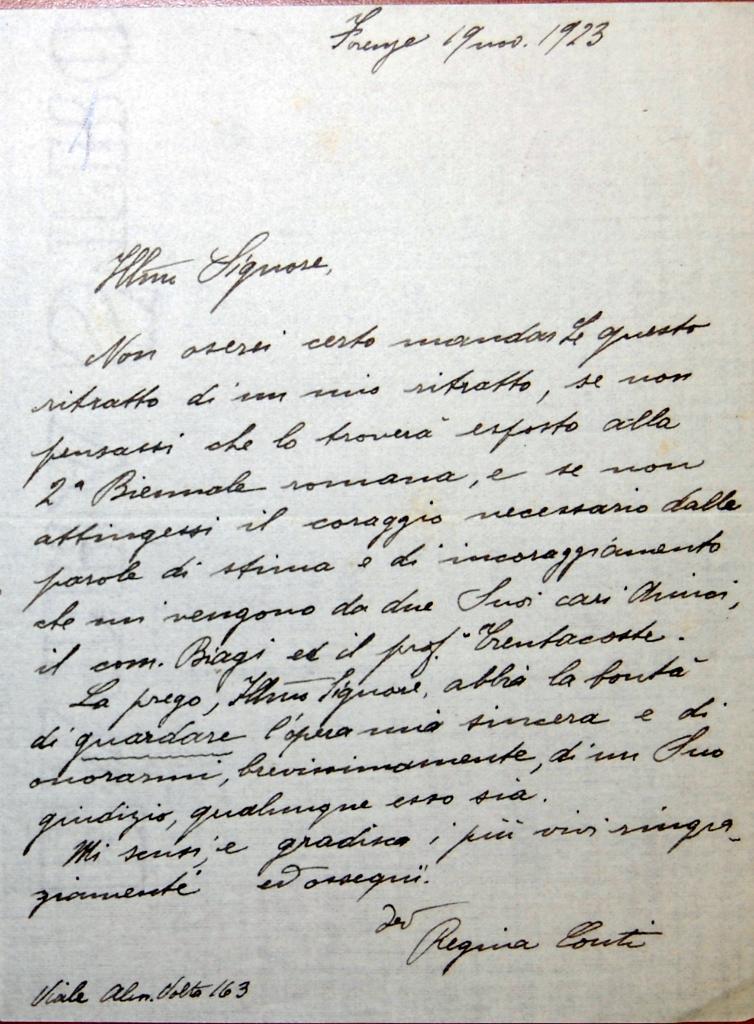 Firenze 19 nov. 1923
Illmo Signore,
Non oserei certo mandarLe questo
ritratto di un mio ritratto, se non
pensassi che lo troverà esposto alla
2ª Biennale romana, e se non
attingessi il coraggio necessario dalle
parole di stima e di incoraggiamento
che mi vengono da due Suoi cari Amici,
il com. Biagi ed il prof. Trentacoste.
La prego, Illmo Signore, abbia la bontà
di guardare l'opera mia sincera e di
onorarmi, brevissimamente, di un Suo
giudizio, qualunque esso sia.
Mi scusi, e gradisca i più vivi ringra-
ziamenti ed ossequi.
dev
Regina Conti
Viale Aless. Volta 163